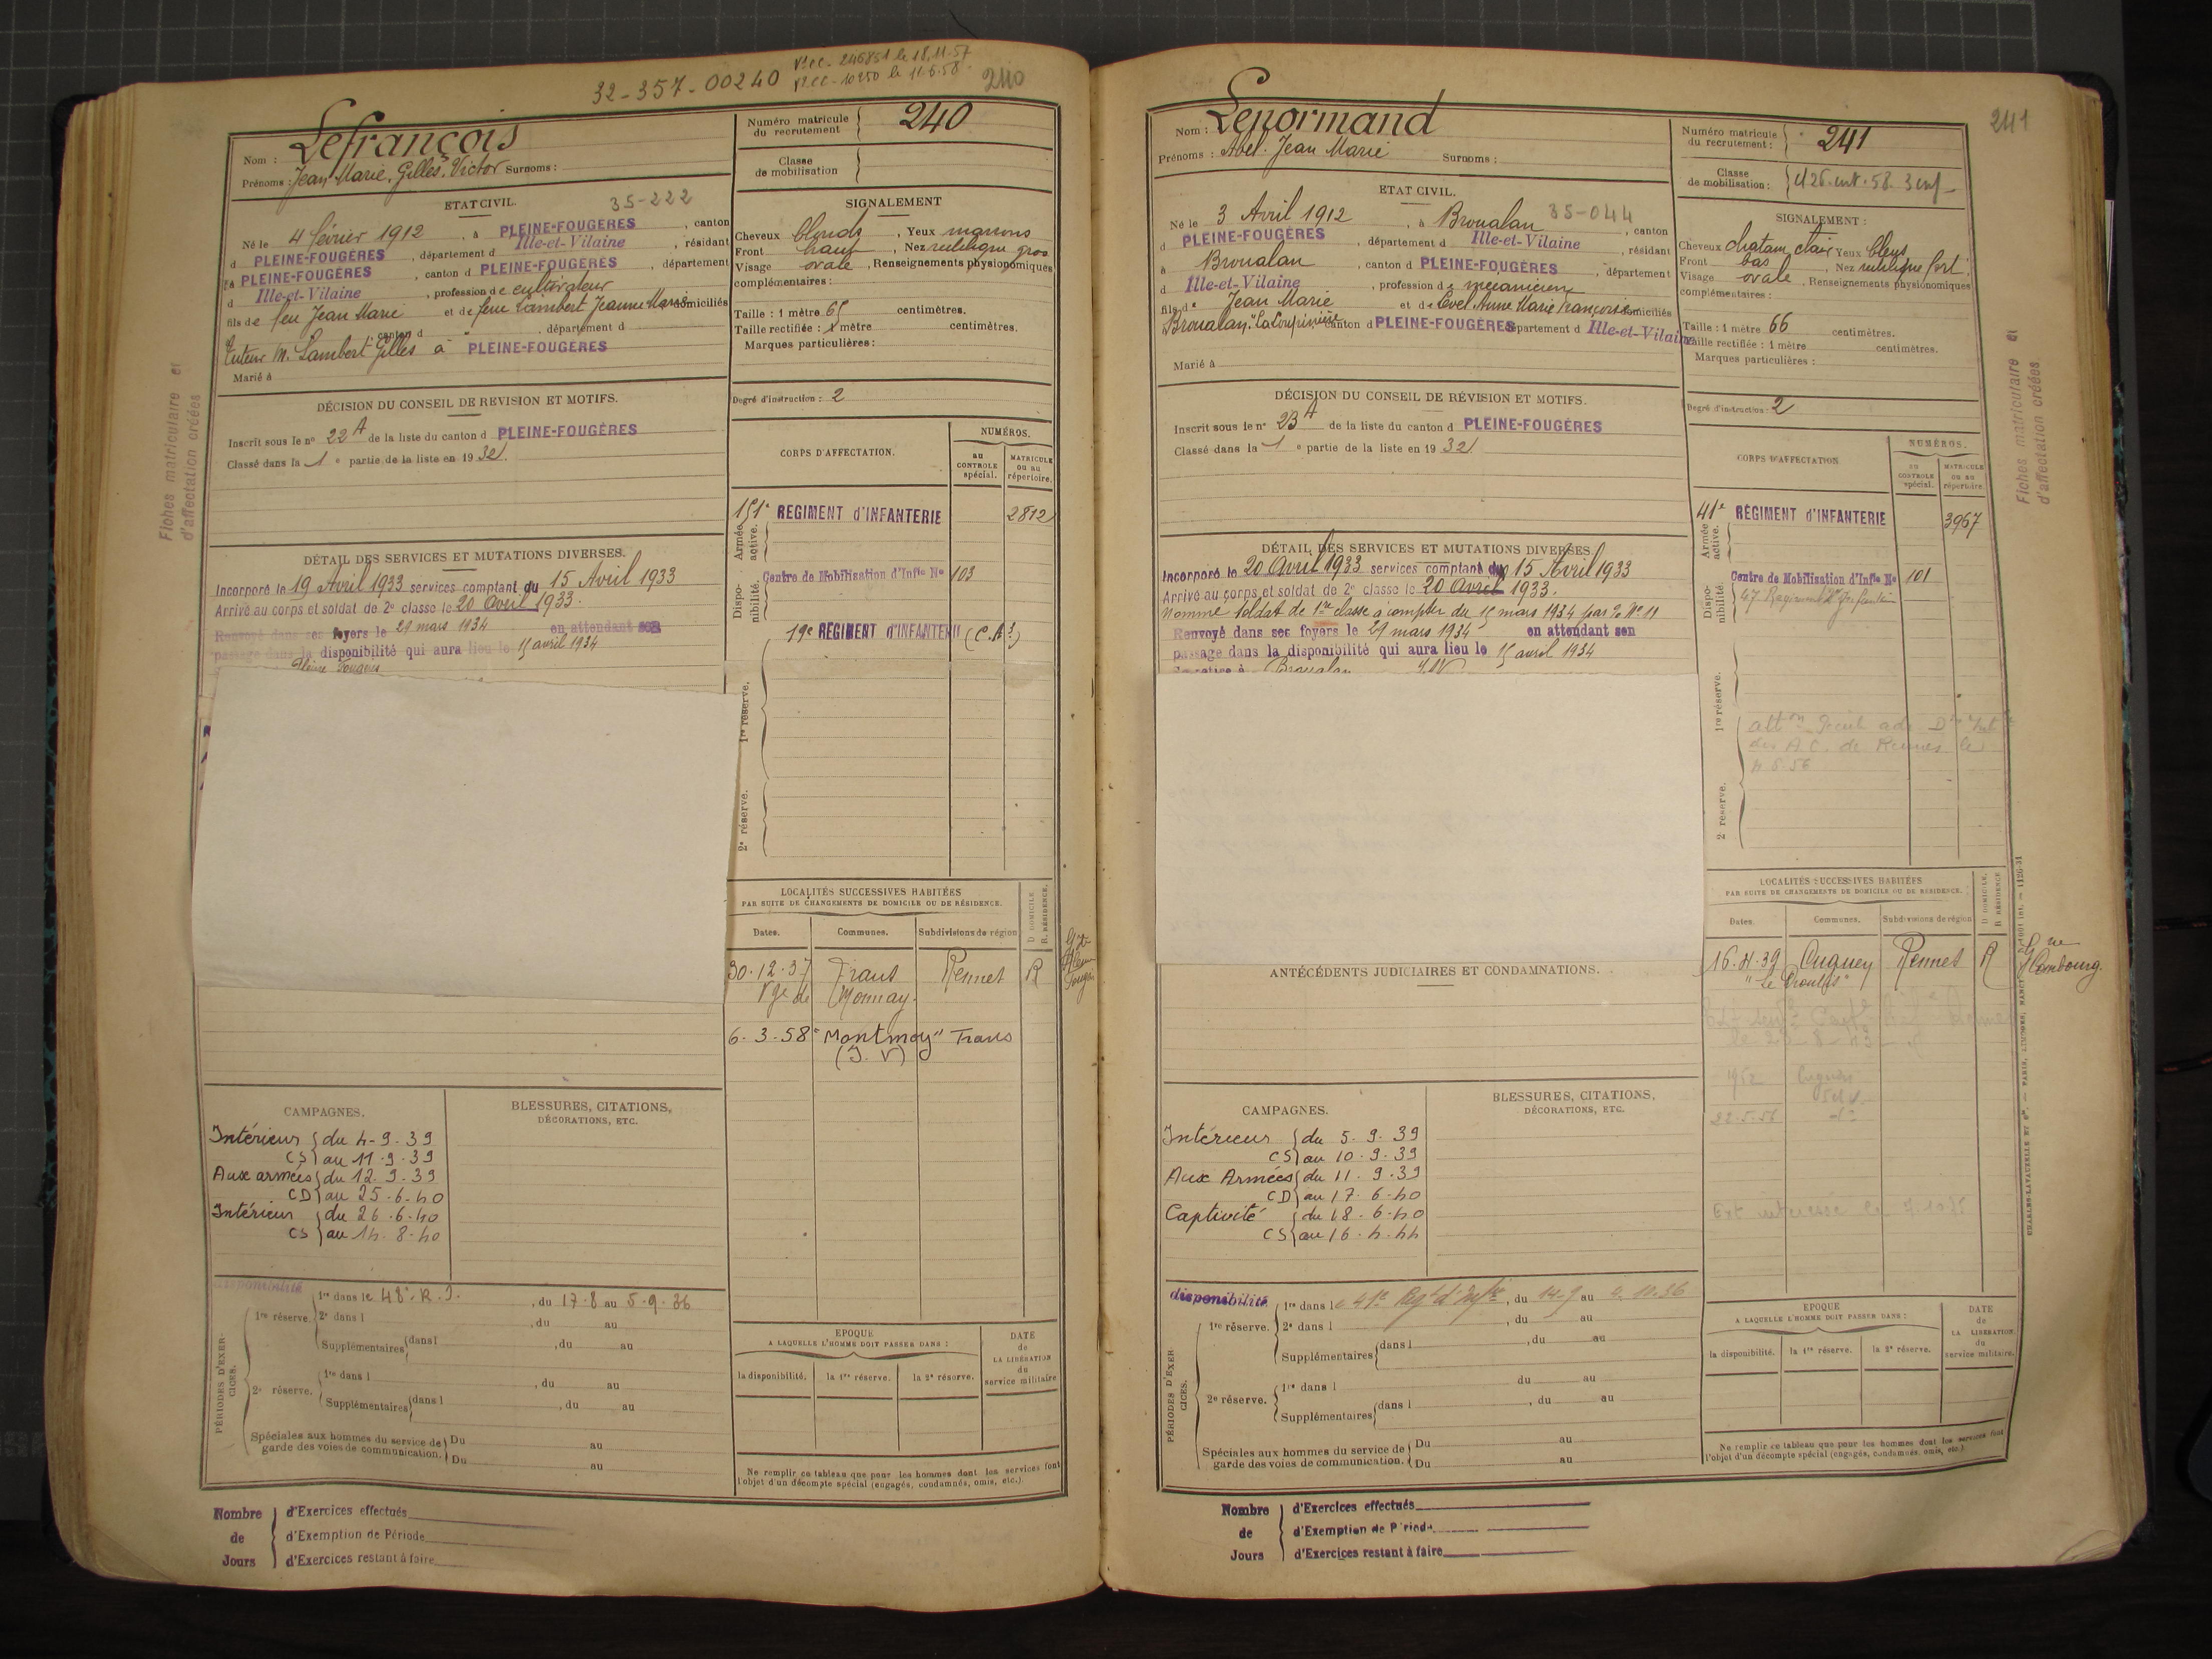 32-357-00240
240
Nom : Lefrançois
Prénoms : Jean Marie, Gilles, Victor Surnoms :
Numéro matricule du recrutement 240
Classe de mobilisation
ETAT CIVIL.
35-222
Né le 4 février 1912, à PLEINE-FOUGÈRES, canton
d PLEINE-FOUGÈRES, département d Ille-et-Vilaine, résidant
à PLEINE-FOUGÈRES, canton d PLEINE-FOUGÈRES, département
d Ille-et-Vilaine, profession de cultivateur
fils de feu Jean Marie et de feue Lambert Jeanne Marie domiciliés
canton d , département d
tuteur M. Lambert Gilles à PLEINE-FOUGÈRES
Marié à
SIGNALEMENT
Cheveux blonds, Yeux marrons
Front haut, Nez rectiligne gros
Visage ovale, Renseignements physionomiques
complémentaires :
Taille : 1 mètre 65 centimètres.
Taille rectifiée : 1 mètre centimètres.
Marques particulières :
Degré d'instruction : 2
DÉCISION DU CONSEIL DE REVISION ET MOTIFS.
Inscrit sous le nº 22 A de la liste du canton d PLEINE-FOUGÈRES
Classé dans la 1 e partie de la liste en 1932.
CORPS D'AFFECTATION.
NUMÉROS.
AU CONTROLE spécial.
MATRICULE ou au répertoire.
Armée active.
151e REGIMENT d'INFANTERIE 2812
Disponibilité.
Centre de Mobilisation d'Infie Nº 103
19e REGIMENT d'INFANTERIE
1re réserve.
2e réserve.
DÉTAIL DES SERVICES ET MUTATIONS DIVERSES.
Incorporé le 19 Avril 1933 services comptant du 15 Avril 1933
Arrivé au corps et soldat de 2e classe le 20 Avril 1933.
Renvoyé dans ses foyers le 29 mars 1934 en attendant son
passage dans la disponibilité qui aura lieu le 15 avril 1934
Pleine Fougères
LOCALITÉS SUCCESSIVES HABITÉES
PAR SUITE DE CHANGEMENTS DE DOMICILE OU DE RÉSIDENCE.
Dates. Communes. Subdivisions de région
D. DOMICILE. R. RÉSIDENCE.
30.12.37 Trans Rennes R
Vge de Monnay.
6.3.58 "Montmoy" Trans
(I. V)
CAMPAGNES.
BLESSURES, CITATIONS, DÉCORATIONS, ETC.
Intérieur du 4-9-39
CS au 11.9.39
Aux armées du 12.9.39
CD au 25-6-40
Intérieur du 26-6-40
CS au 14.8-40
disponibilité
PÉRIODES D'EXERCICES.
1re réserve. 1re dans le 48e R.I., du 17-8 au 5.9.36
2e dans l , du au
Supplémentaires dans l , du au
2e réserve. 1re dans l , du au
Supplémentaires dans l , du au
Spéciales aux hommes du service de garde des voies de communication. Du au
Du au
EPOQUE
A LAQUELLE L'HOMME DOIT PASSER DANS :
la disponibilité. la 1re réserve. la 2e réserve.
DATE de LA LIBÉRATION du service militaire
Ne remplir ce tableau que pour les hommes dont les services font
l'objet d'un décompte spécial (engagés, condamnés, omis, etc.).
Nombre de Jours
d'Exercices effectués
d'Exemption de Période
d'Exercices restant à faire
Fiches matriculaire et
d'affectation créées
241
Nom : Lenormand
Prénoms : Abel. Jean Marie Surnoms :
Numéro matricule du recrutement : 241
Classe de mobilisation :
ETAT CIVIL.
Né le 3 Avril 1912, à Broualan 35-044, canton
d PLEINE-FOUGÈRES, département d Ille-et-Vilaine, résidant
à Broualan, canton d PLEINE-FOUGÈRES, département
d Ille-et-Vilaine, profession de mécanicien
fils de Jean Marie et de Evel Anne Marie Françoise domiciliés
Broualan, canton d PLEINE-FOUGÈRES département d Ille-et-Vilaine
Marié à
SIGNALEMENT :
Cheveux chatain clair Yeux bleus
Front bas, Nez rectiligne fort
Visage ovale, Renseignements physionomiques
complémentaires :
Taille : 1 mètre 66 centimètres.
Taille rectifiée : 1 mètre centimètres.
Marques particulières :
Degré d'instruction : 2
DÉCISION DU CONSEIL DE RÉVISION ET MOTIFS.
Inscrit sous le nº 23 A de la liste du canton d PLEINE-FOUGÈRES
Classé dans la 1 e partie de la liste en 1932
CORPS D'AFFECTATION
NUMÉROS.
AU CONTROLE spécial.
MATRICULE ou au répertoire.
Armée active.
41e REGIMENT d'INFANTERIE 3967
Disponibilité.
Centre de Mobilisation d'Infie Nº 101
47e Régiment d'Infanterie
1re réserve.
2e réserve.
DÉTAIL DES SERVICES ET MUTATIONS DIVERSES.
Incorporé le 20 Avril 1933 services comptant du 15 Avril 1933
Arrivé au corps et soldat de 2e classe le 20 Avril 1933.
Nommé soldat de 1re classe à compter du 15 mars 1934
Renvoyé dans ses foyers le 29 mars 1934 en attendant son
passage dans la disponibilité qui aura lieu le 15 avril 1934
Broualan
ANTÉCÉDENTS JUDICIAIRES ET CONDAMNATIONS.
LOCALITÉS SUCCESSIVES HABITÉES
PAR SUITE DE CHANGEMENTS DE DOMICILE OU DE RÉSIDENCE.
Dates. Communes. Subdivisions de région
D DOMICILE. R RÉSIDENCE
16.4.39 Cuguen Rennes R
Combourg.
22.5.56
CAMPAGNES.
BLESSURES, CITATIONS, DÉCORATIONS, ETC.
Intérieur du 5.9.39
CS au 10.9.39
Aux Armées du 11.9.39
CD au 17.6-40
Captivité du 18.6-40
CS au 16.4.44
disponibilité
PÉRIODES D'EXERCICES.
1re réserve. 1re dans le 41e Regt d'Infie, du 14-9 au
2e dans l , du au
Supplémentaires dans l , du au
2e réserve. 1re dans l du au
Supplémentaires dans l , du au
Spéciales aux hommes du service de garde des voies de communication. Du au
Du au
EPOQUE
A LAQUELLE L'HOMME DOIT PASSER DANS :
la disponibilité. la 1re réserve. la 2e réserve.
DATE de LA LIBÉRATION du service militaire.
Ne remplir ce tableau que pour les hommes dont les services font
l'objet d'un décompte spécial (engagés, condamnés, omis, etc.)
Nombre de Jours
d'Exercices effectués
d'Exemption de Période
d'Exercices restant à faire
Fiches matriculaire et
d'affectation créées